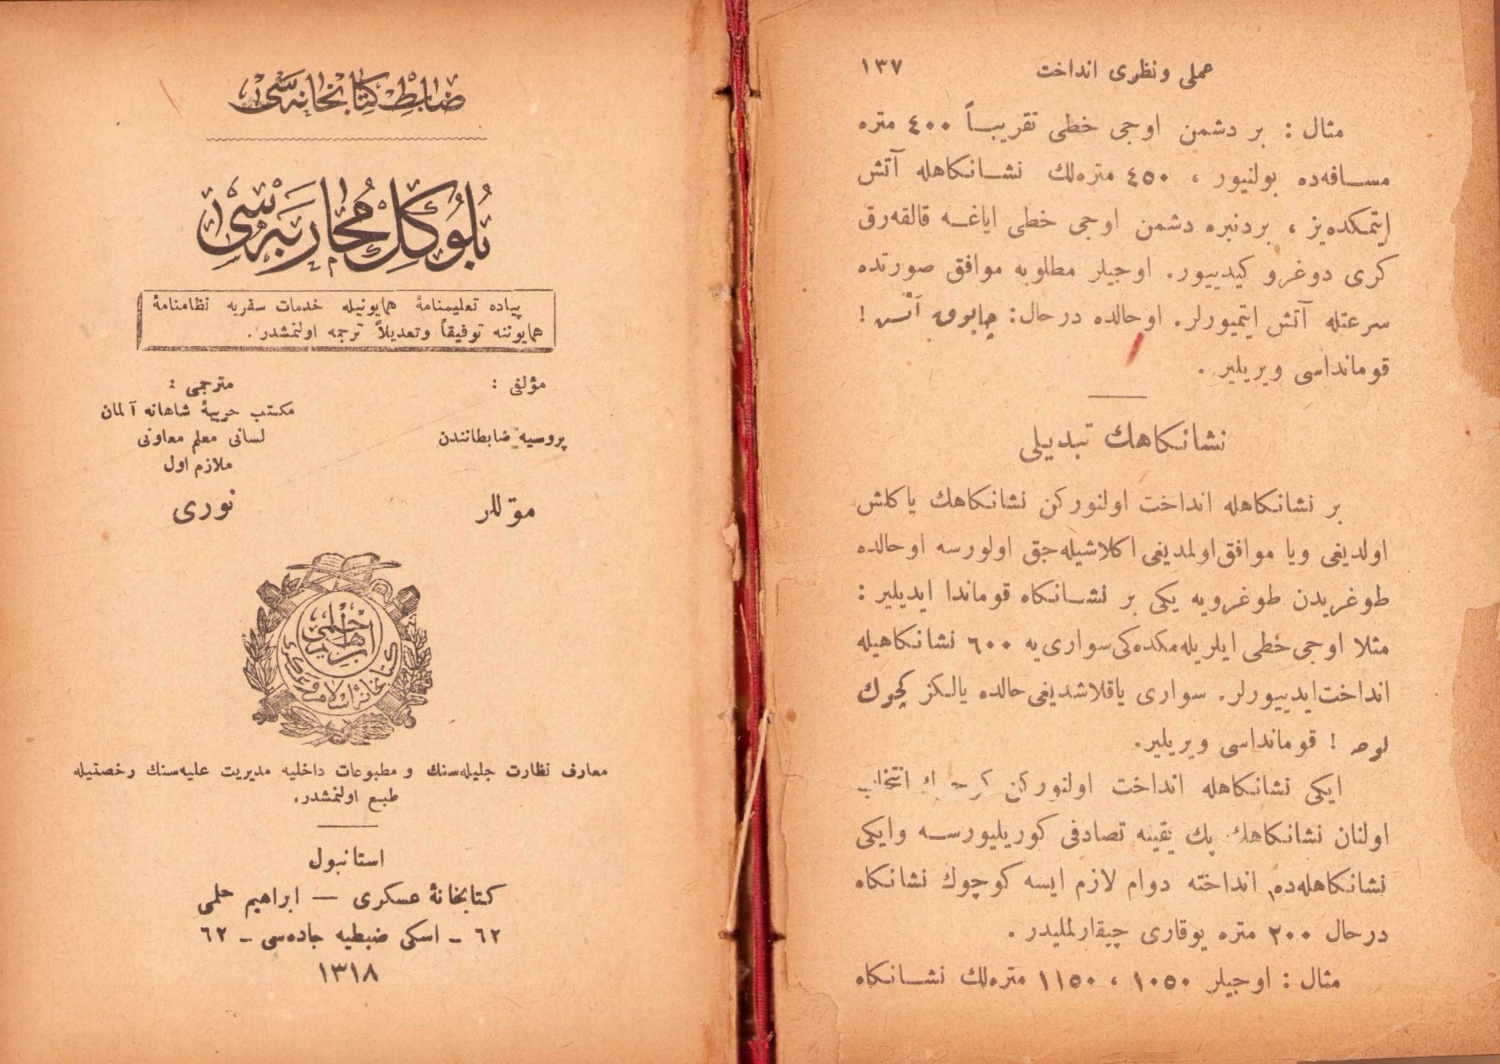 ضابط كتابخانه‌سی
بلوكك محاربه‌سی
پیاده تعلیمنامهٔ همایونیله خدمات سفریه نظامنامهٔ
همایوننه توفیقاً وتعدیلاً ترجمه اولنمشدر.
مؤلفی :
پروسیه ضابطانندن
موٓللر
مترجمی :
مكتب حربیهٔ شاهانه آلمان
لسانی معلم معاونی
ملازم اول
نوری
ابراهیم حلمی
كتابخانهٔ اسلام وعسكری
معارف نظارت جلیله‌سنك و مطبوعات داخلیه مدیریت علیه‌سنك رخصتیله
طبع اولنمشدر.
استانبول
كتابخانهٔ عسكری — ابراهیم حلمی
٦٢ - اسكی ضبطیه جاده‌سی - ٦٢
١٣١٨
عملی ونظری انداخت ١٣٧
مثال : بر دشمن اوجی خطی تقریباً ٤٠٠ متره
مسافه‌ده بولنیور ، ٤٥٠ متره‌لك نشانكاهله آتش
ایتمكده‌یز ، بردنبره دشمن اوجی خطی ایاغه قالقه‌رق
كری دوغرو كیدییور. اوجیلر مطلوبه موافق صورتده
سرعتله آتش ایتمیورلر. اوحالده درحال: چابوق آتش !
قومانداسی ویریلیر .
نشانكاهك تبدیلی
بر نشانكاهله انداخت اولنوركن نشانكاهك یاكلش
اولدیغی ویا موافق اولمدیغی اكلاشیله‌جق اولورسه اوحالده
طوغریدن طوغرویه یكی بر نشانكاه قوماندا ایدیلیر :
مثلا اوجی خطی ایلریله‌مكده‌كی سواری‌یه ٦٠٠ نشانكاهیله
انداخت ایدییورلر. سواری یاقلاشدیغی حالده یالكز كچوك
لوحه ! قومانداسی ویریلیر.
ایكی نشانكاهله انداخت اولنوركن انتخاب
اولنان نشانكاهك پك یقینه تصادفی كوریلیورسه وایكی
نشانكاهله‌ده انداخته دوام لازم ایسه كوچوك نشانكاه
درحال ٢٠٠ متره یوقاری چیقارلملیدر .
مثال : اوجیلر ١٠٥٠ ، ١١٥٠ متره‌لك نشانكاه